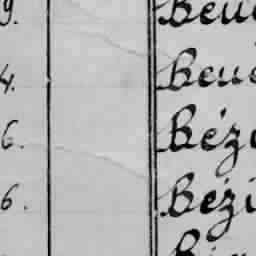 9. Beu
4. Beu
6. Bézi
6. Bézi